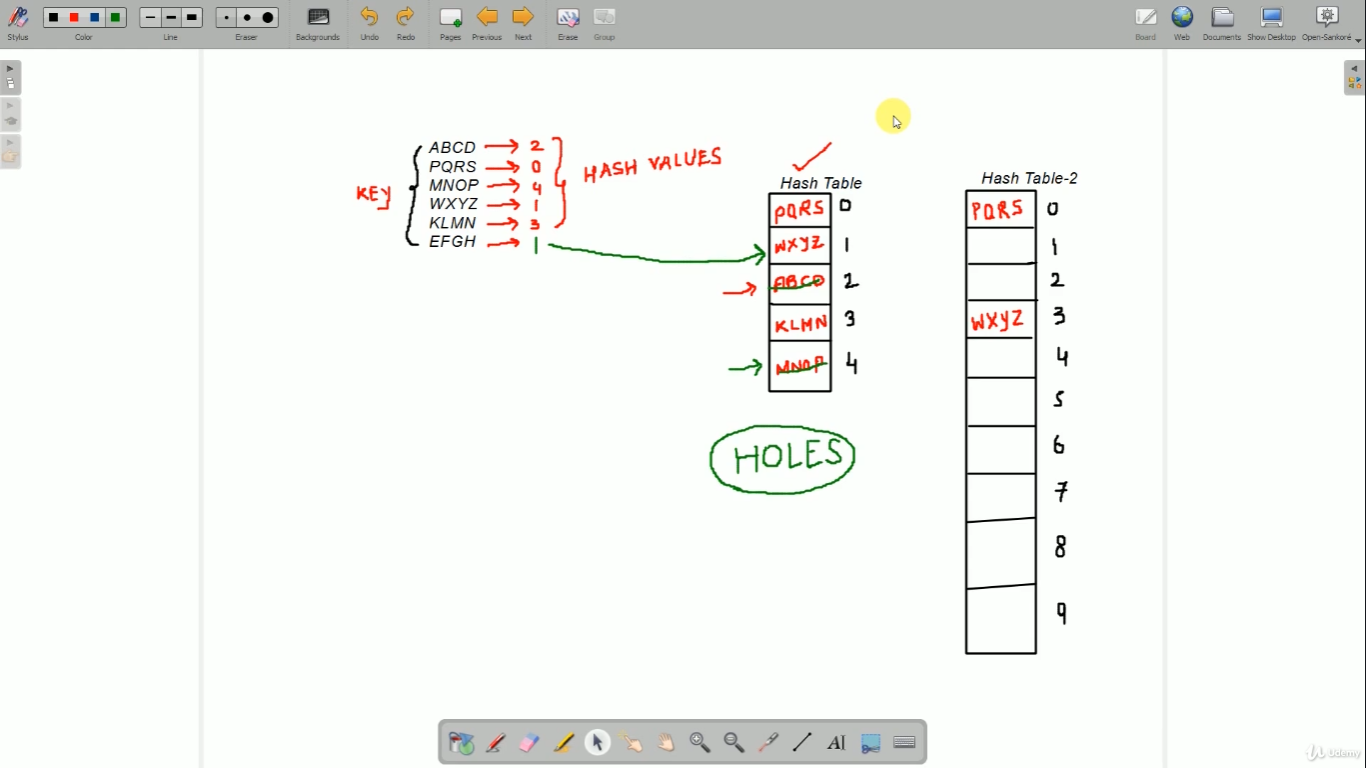 Stylus Color Line Eraser Backgrounds Undo Redo Pages Previous Next Erase Group Board Web Documents Show Desktop Open-Sankoré
KEY
ABCD 2
PQRS 0
MNOP 4
WXYZ 1
KLMN 3
EFGH 1
HASH VALUES
Hash Table
PQRS 0
WXYZ 1
ABCD 2
KLMN 3
MNOP 4
HOLES
Hash Table-2
PQRS 0
1
2
WXYZ 3
4
5
6
7
8
9
AI
Udemy